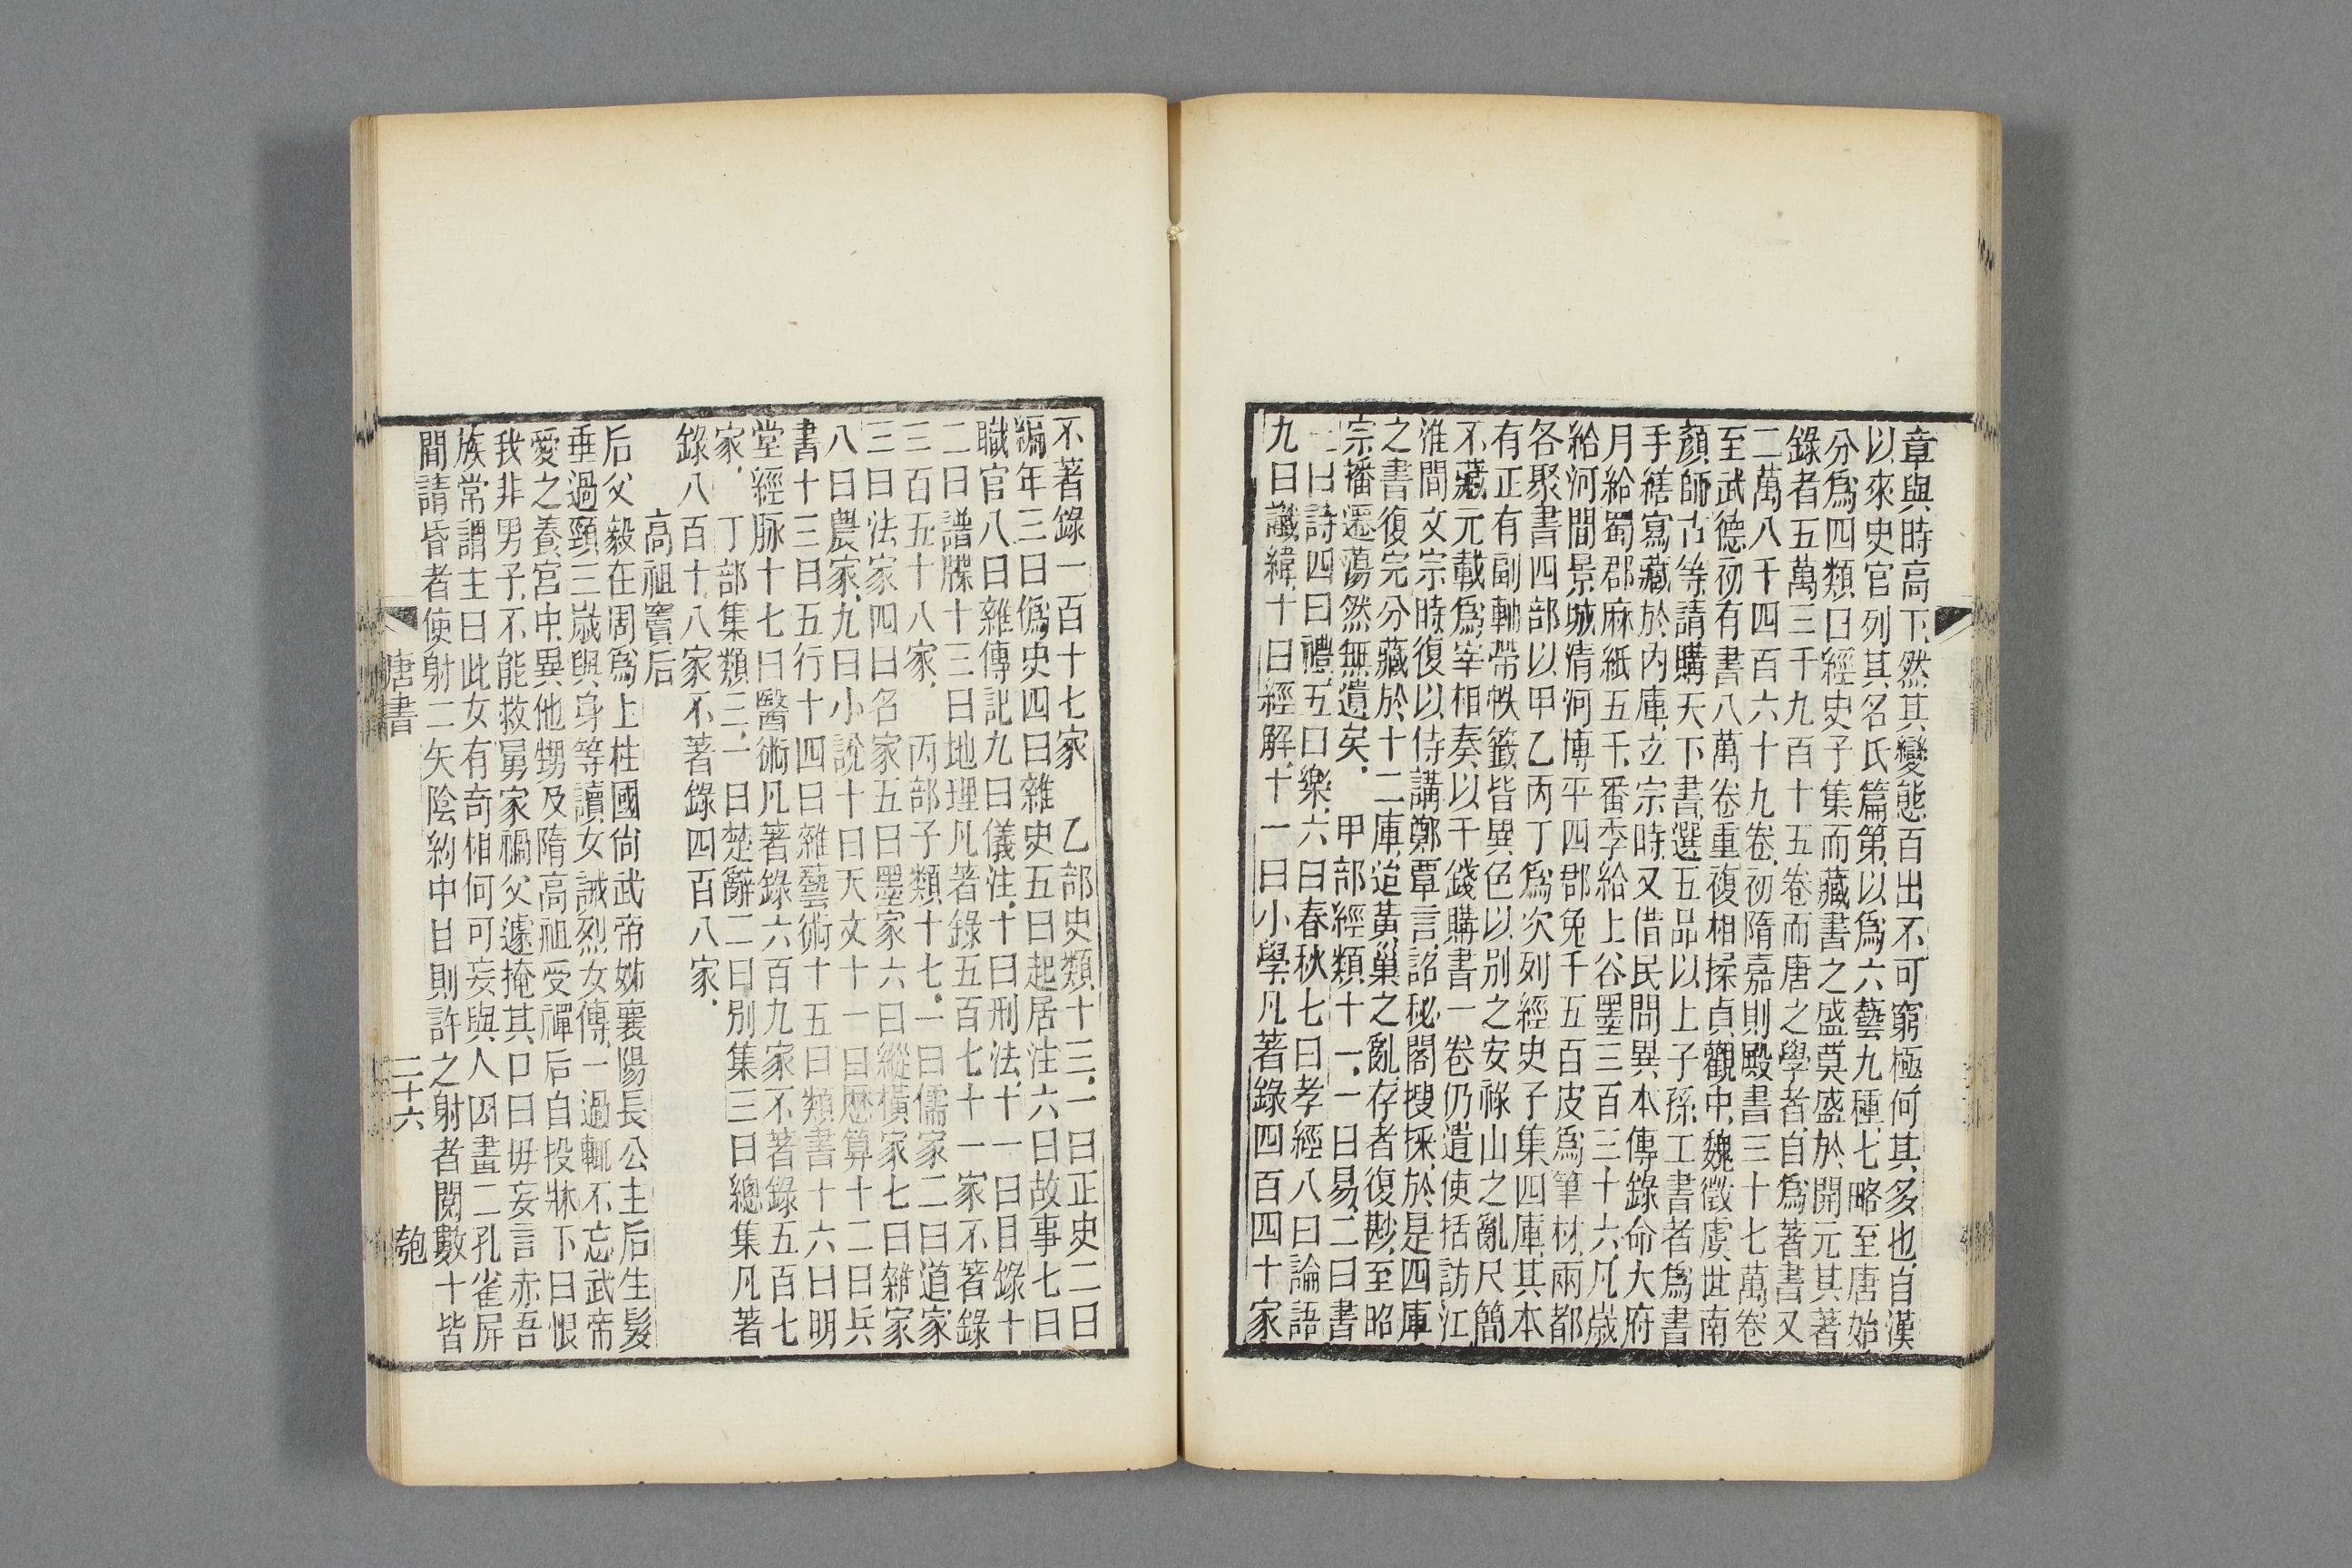 章與時高下然其變態百出不可窮極何其多也自漢
以來史官列其名氏篇第以爲六藝九種七略至唐始
分爲四類曰經史子集而藏書之盛莫盛於開元其著
錄者五萬三千九百十五卷而唐之學者自爲著書又
二萬八千四百六十九卷初隋嘉則殿書三十七萬卷
至武德初有書八萬卷重複相揉貞觀中魏徵虞世南
顏師古等請購天下書選五品以上子孫工書者爲書
手繕寫藏於內庫立宗時又借民間異本傳錄命大府
月給蜀郡麻紙五千番季給上谷墨三百三十六凡歲
給河間景城清河博平四郡兔千五百皮爲筆材兩都
各聚書四部以甲乙丙丁爲次列經史子集四庫其本
有正有副軸帶帙籤皆異色以別之安祿山之亂尺簡
不藏元載爲宰相奏以千錢購書一卷仍遺使括訪江
淮間文宗時復以侍講鄭覃言詔秘閣搜採於是四庫
之書復完分藏於十二庫迨黃巢之亂存者復尠至昭
宗播遷蕩然無遺矣 甲部經類十一一曰易二曰書
曰詩四曰禮五曰樂六曰春秋七曰孝經八曰論語
九曰讖緯十曰經解十一曰小學凡著錄四百四十家
不著錄一百十七家 乙部史類十三一曰正史二曰
編年三曰僞史四曰雜史五曰起居注六曰故事七曰
職官八曰雜傳記九曰儀注十曰刑法十一曰目錄十
二曰譜牒十三曰地理凡著錄五百七十一家不著錄
三百五十八家 丙部子類十七一曰儒家二曰道家
三曰法家四曰名家五曰墨家六曰縱橫家七曰雜家
八曰農家九曰小說十曰天文十一曰歷算十二曰兵
書十三曰五行十四曰雜藝術十五曰類書十六曰明
堂經脉十七曰醫術凡著錄六百九家不著錄五百七
家 丁部集類三一曰楚辭二曰別集三曰總集凡著
錄八百十八家不著錄四百八家
高祖竇后
后父毅在周爲上柱國尙武帝姊襄陽長公主后生髮
垂過頸三歲與身等讀女誡烈女傳一過輒不忘武帝
愛之養宮中異他甥及隋高祖受禪后自投牀下曰恨
我非男子不能救舅家禍父遽掩其口曰毋妄言赤吾
族常謂主曰此女有奇相何可妄與人因畫二孔雀屏
間請昏者使射二矢陰約中目則許之射者閱數十皆
唐書 二十六 匏